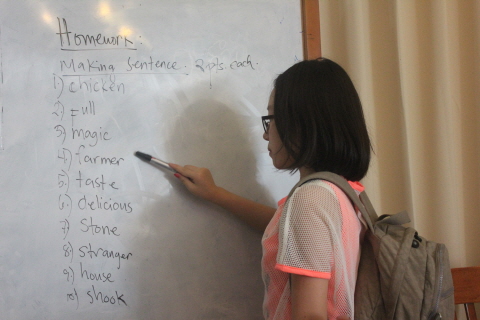 Homework:
Making Sentence. 2pts. each.
1) chicken
2) Full
3) magic
4) farmer
5) taste
6) delicious
7) Stone
8) Stranger
9) house
10) shook